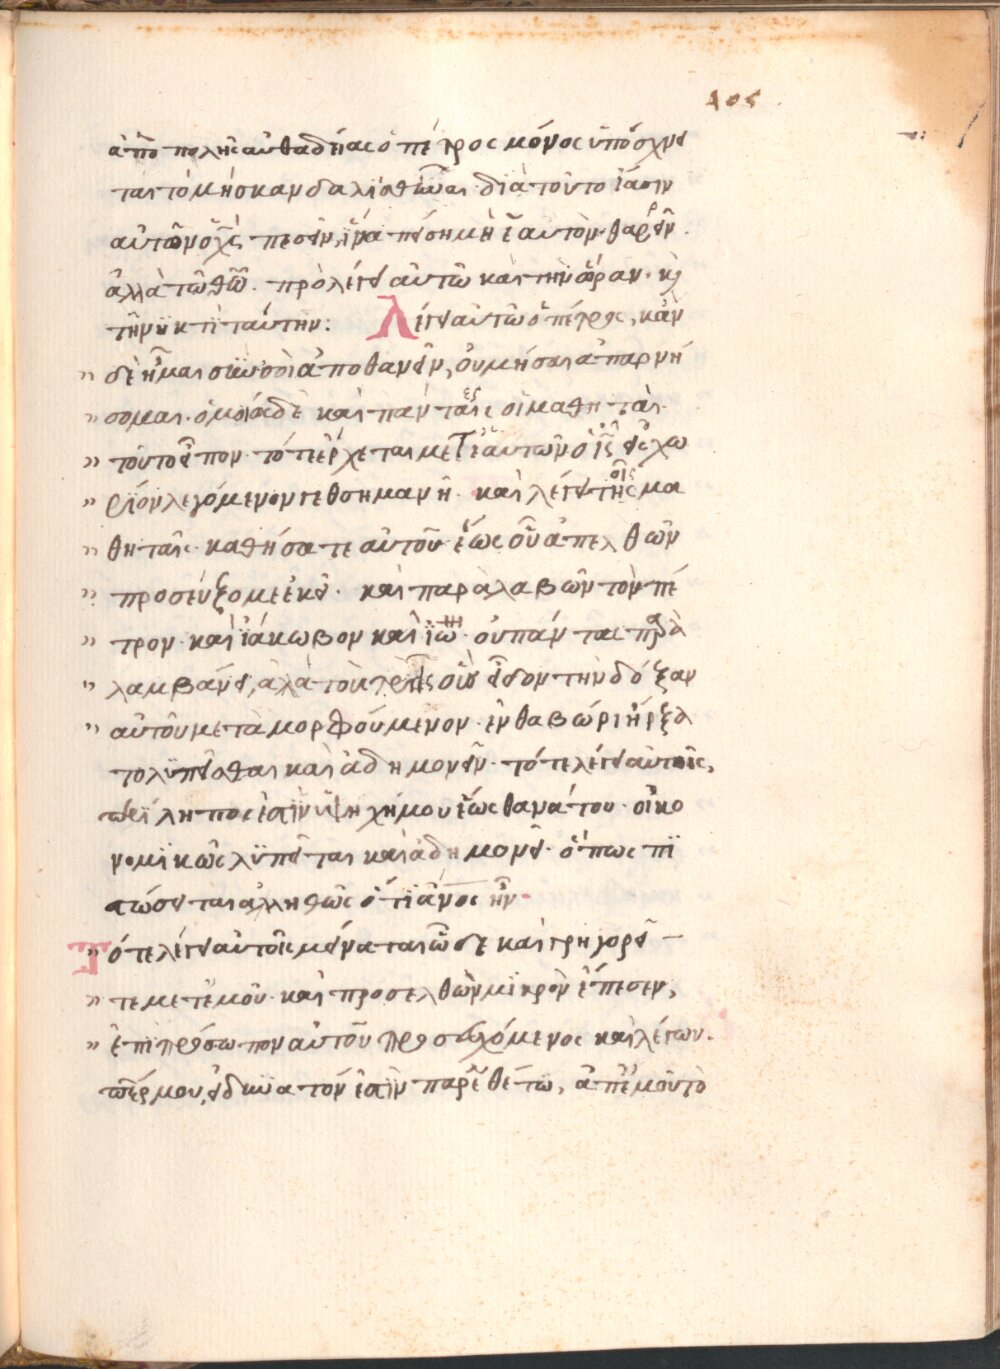 105
ἀπὸ πολλῆς αὐθαδείας ὁ πέτρος μόνος ὑπόσχνεῖ
ται τὸ μὴ σκανδαλισθῆναι διὰ τοῦτο ἐάσειν
αὐτὸν ὁ χς πεσεῖν, ἵνα πείση μὴ ἑαυτὸν θαρρεῖν.
ἀλλὰ τῶ θω. προλέγει αὐτῶ καὶ τὴν ὥραν. κ
τὴν νύκτὶ ταύτην: Λέγει αὐτῶ ὁ πέτρος, κἂν
δέη με σὺν σοὶ ἀποθανεῖν, οὐ μή σαι ἀπαρνή
σομαι. ὁμοίως δὲ καὶ πάντες οἱ μαθηταὶ
τοῦτο εἶπον. τότε ἔρχεται μετ αὐτῶν ὁ ις εἰς χω
ρίον λεγόμενον γεθσημανῆ. καὶ λέγει τοῖς μα
θηταῖς. καθήσατε αὐτοῦ ἕως οὗ ἀπελθὼν
προσεύξομε ἐκεῖ. καὶ παραλαβὼν τὸν πέ
τρον. καὶ ϊάκωβον καὶ ϊω οὐ πάντας παρα
λαμβάνει, ἀλὰ τοὺς τρεῖς οἳ εἶδον τὴν δόξαν
αὐτοῦ μεταμορφούμενον. ἐν θαβώριἤρξα
το λϋπεῖσθαι καὶ ἀδημονεῖν. τότε λέγει αὐτοῖς,
περίληπος ἐστὶν ἡ ψηχή μου ἕως θανάτου. οἰκο
νομϊκῶς λϋπεῖται καὶ ἀδημονεῖ. ὅπως πϊ
στώσεται ἀληθῶς ὅτϊ ανος ἦν
Τότε λέγει αὐτοῖς μείναται ὧδε καὶ γρηγορεῖ
τε μετ ἐμοῦ. καὶ προσελθὼν μϊκρὸν ἔπεσεν,
ἐπὶ πρόσωπον αὐτοῦ προσευχόμενος καὶ λέγων.
περ μου, εἰ δυνατόν ἐστὶν παρελθέτω, ἀπ ἐμοῦ τὸ